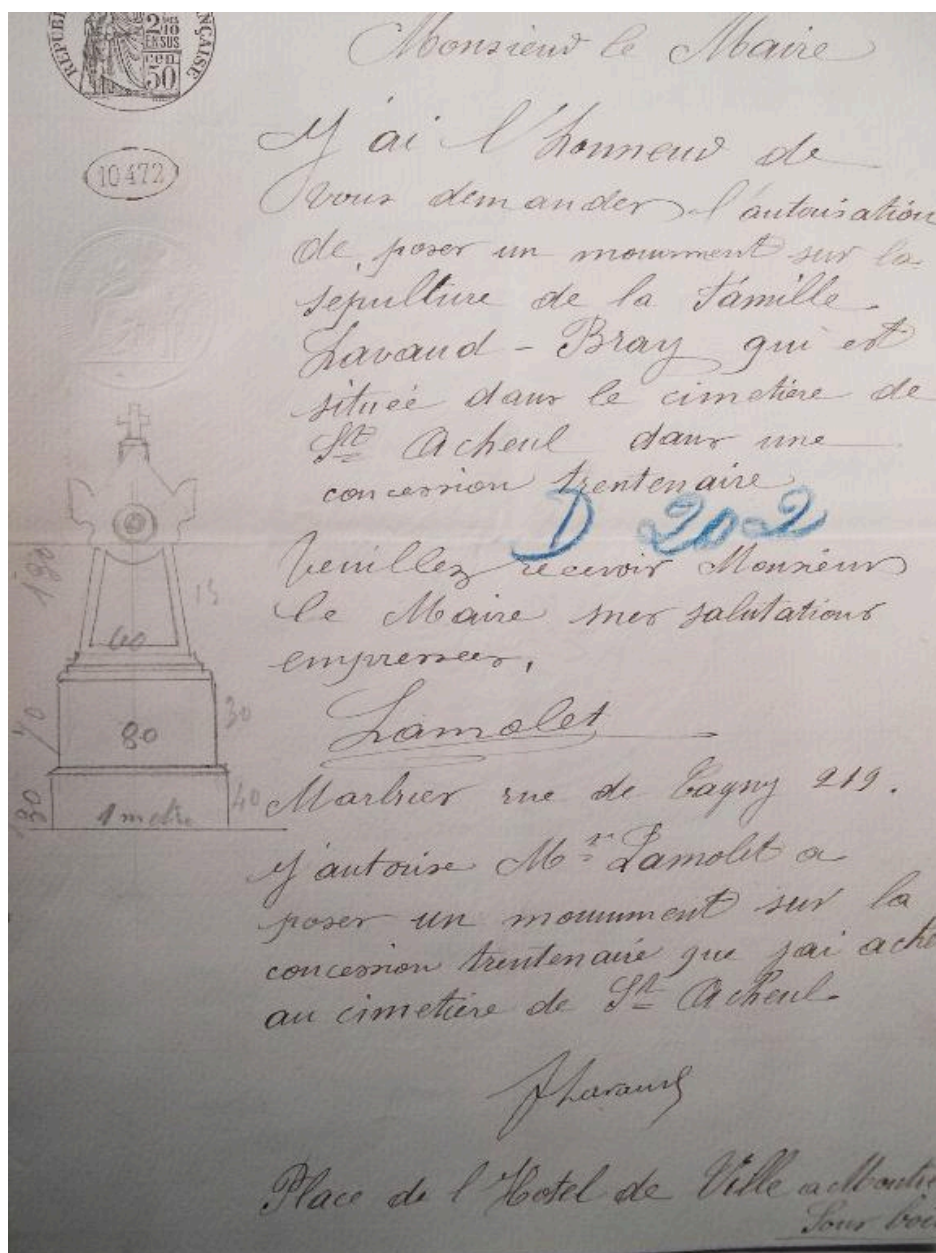 RÉPUBLIQUE FRANÇAISE
2/10
EN SUS
50
cen
10472
Monsieur le Maire
J'ai l'honneur de
vous demander l'autorisation
de poser un monument sur la
sépulture de la famille
Lavaud - Bray qui est
située dans le cimetière de
St Acheul dans une
concession trentenaire
D 202
Veuillez recevoir Monsieur
le Maire mes salutations
empressées,
Lamolet
Marbrier rue de Cagny 219.
J'autorise Mr Lamolet a
poser un monument sur la
concession trentenaire que j'ai aché
au cimetière de St Acheul.
Lavaud
Place de l'Hotel de Ville a Montre
Sous boi
190
15
60
70
80
30
40
1 metre